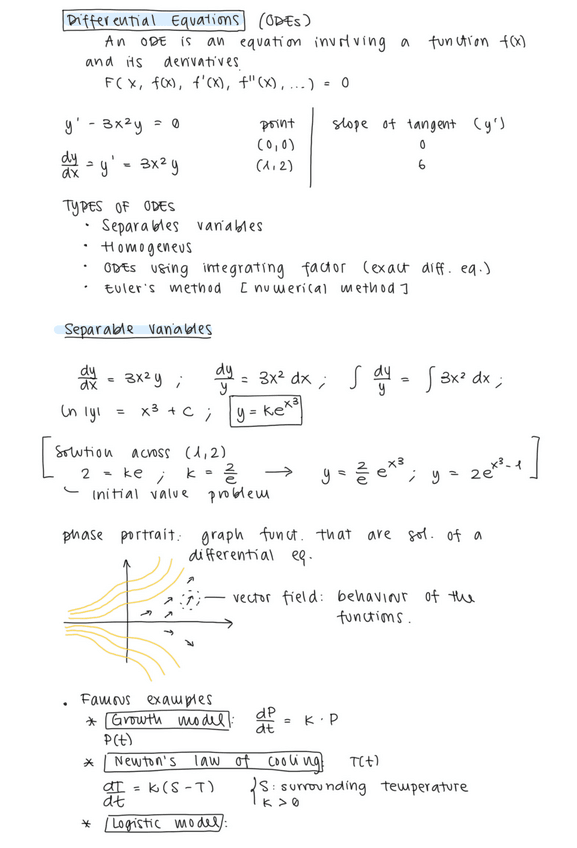 Differential Equations (ODEs)
An ODE is an equation involving a function f(x)
and its derivatives.
F(x, f(x), f'(x), f''(x), ...) = 0
y' - 3x²y = 0
point | slope of tangent (y')
(0,0) | 0
dy/dx = y' = 3x²y
(1,2) | 6
TYPES OF ODEs
• Separables variables
• Homogeneus
• ODEs using integrating factor (exact diff. eq.)
• Euler's method [numerical method]
Separable variables
dy/dx = 3x²y ; dy/y = 3x² dx ; ∫ dy/y = ∫ 3x² dx ;
ln |y| = x³ + C ; y = Ke^(x³)
[Solution across (1,2)
2 = Ke ; K = 2/e → y = 2/e e^(x³) ; y = 2e^(x³-1)]
Initial value problem
phase portrait: graph funct. that are sol. of a
differential eq.
vector field: behaviour of the
functions.
• Famous examples
* Growth model: dP/dt = K · P
P(t)
* Newton's law of cooling T(t)
dT/dt = K(S-T) { S: surrounding temperature
K > 0
* Logistic model: